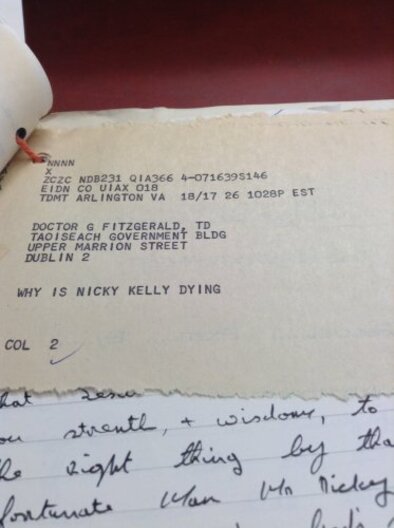 NNNN
X
ZCZC NDB231 QIA366 4-071639S146
EIDN CO UIAX 018
TDMT ARLINGTON VA 18/17 26 1028P EST
DOCTOR G FITZGERALD, TD
TAOISEACH GOVERNMENT BLDG
UPPER MARRION STREET
DUBLIN 2
WHY IS NICKY KELLY DYING
COL 2
strenth, + wisdom, to
right thing by tha
fortunate Man Mr Nicky